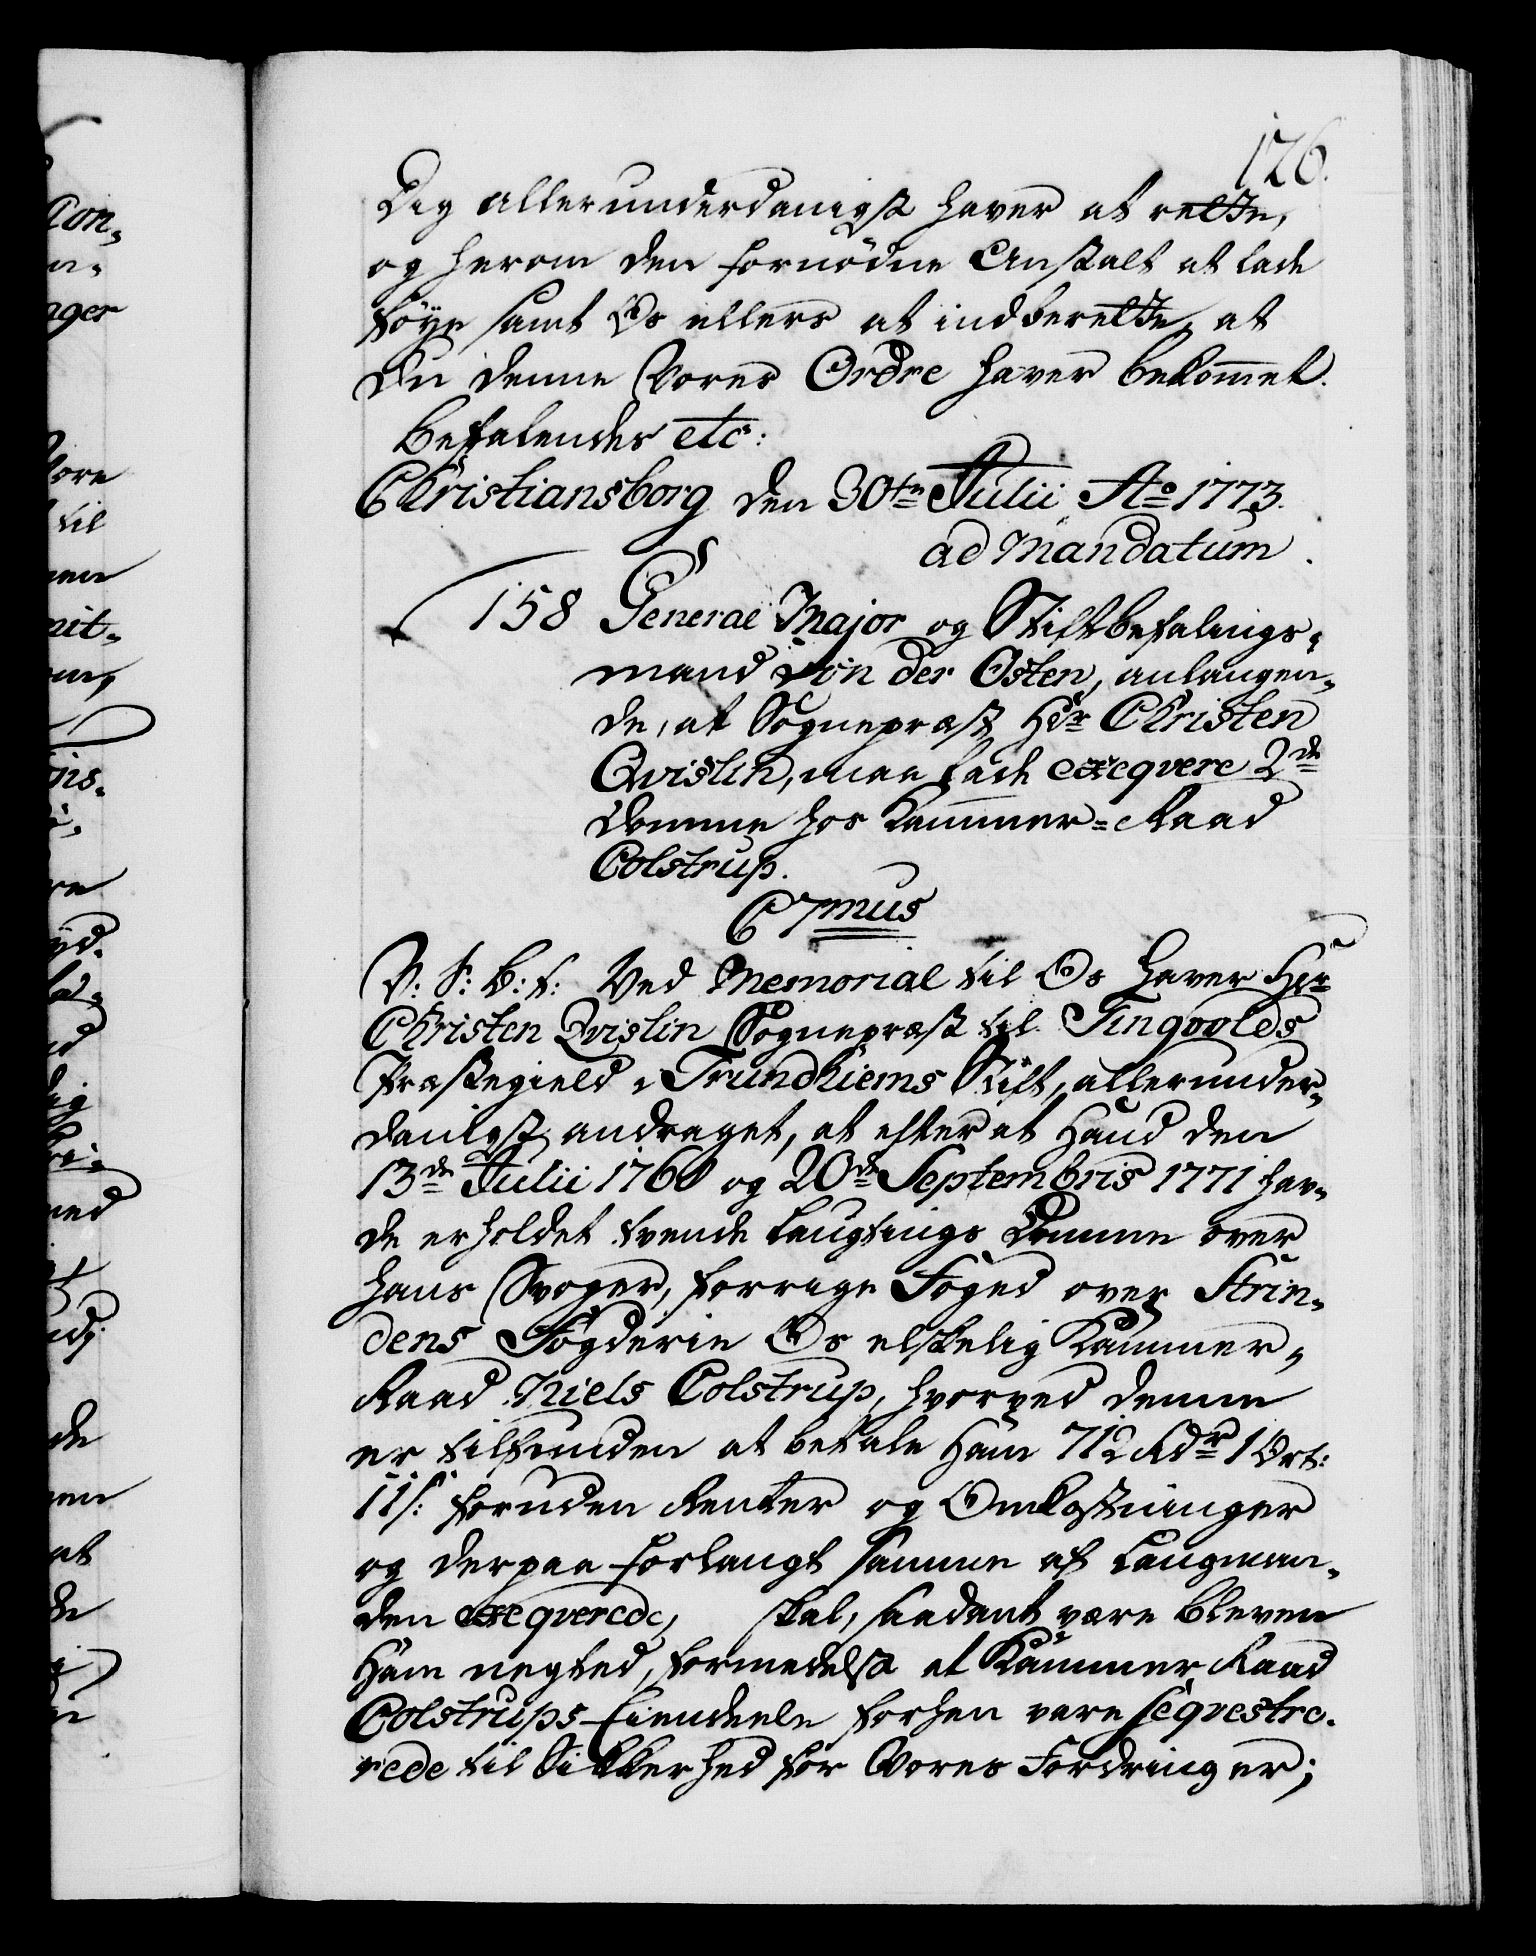 126.
Dig allerunderdanigst haver at rette,
og herom den fornødne Anstalt at lade
føye samt Os ellers at indberette, at
du denne Vores Ordre haver bekommet.
Befalendes etc:
Christiansborg den 30te Julii Ao 1773.
ad Mandatum.
158 General Major og Stiftbefalings-
mand von der Osten, anlangen-
de, at Sognepræst Hr Christen
Qvislin, maa lade exeqvere 2de
Domme hos Kammer-Raad
Colstrup.
C7mus
V: S: B: f: Ved Memorial til Os haver Hr
Christen Qvislin Sognepræst til Tingvolds
Præstegield i Trundhiems Stift, allerunder-
danigst andraget, at efter at Hand den
13de Julii 1760 og 20de Septembris 1771 hav-
de erholdet tvende Laugtings Domme over
hans Svoger, forrige Foged over Strin-
dens Fogderie Os elskelig Kammer-
Raad Niels Colstrup, hvorved denne
er tilfunden at betale Ham 712 Rdr 1 Ort:
11 s: foruden Renter og Omkostninger
og derpaa forlangt samme af Laugman-
den exeqverede, skal, saadant være bleven
Ham negted, formedelst at Kammer Raad
Colstrups Eiendeele forhen vare seqvestre-
rede til Sikkerhed for Vores Fordringer;